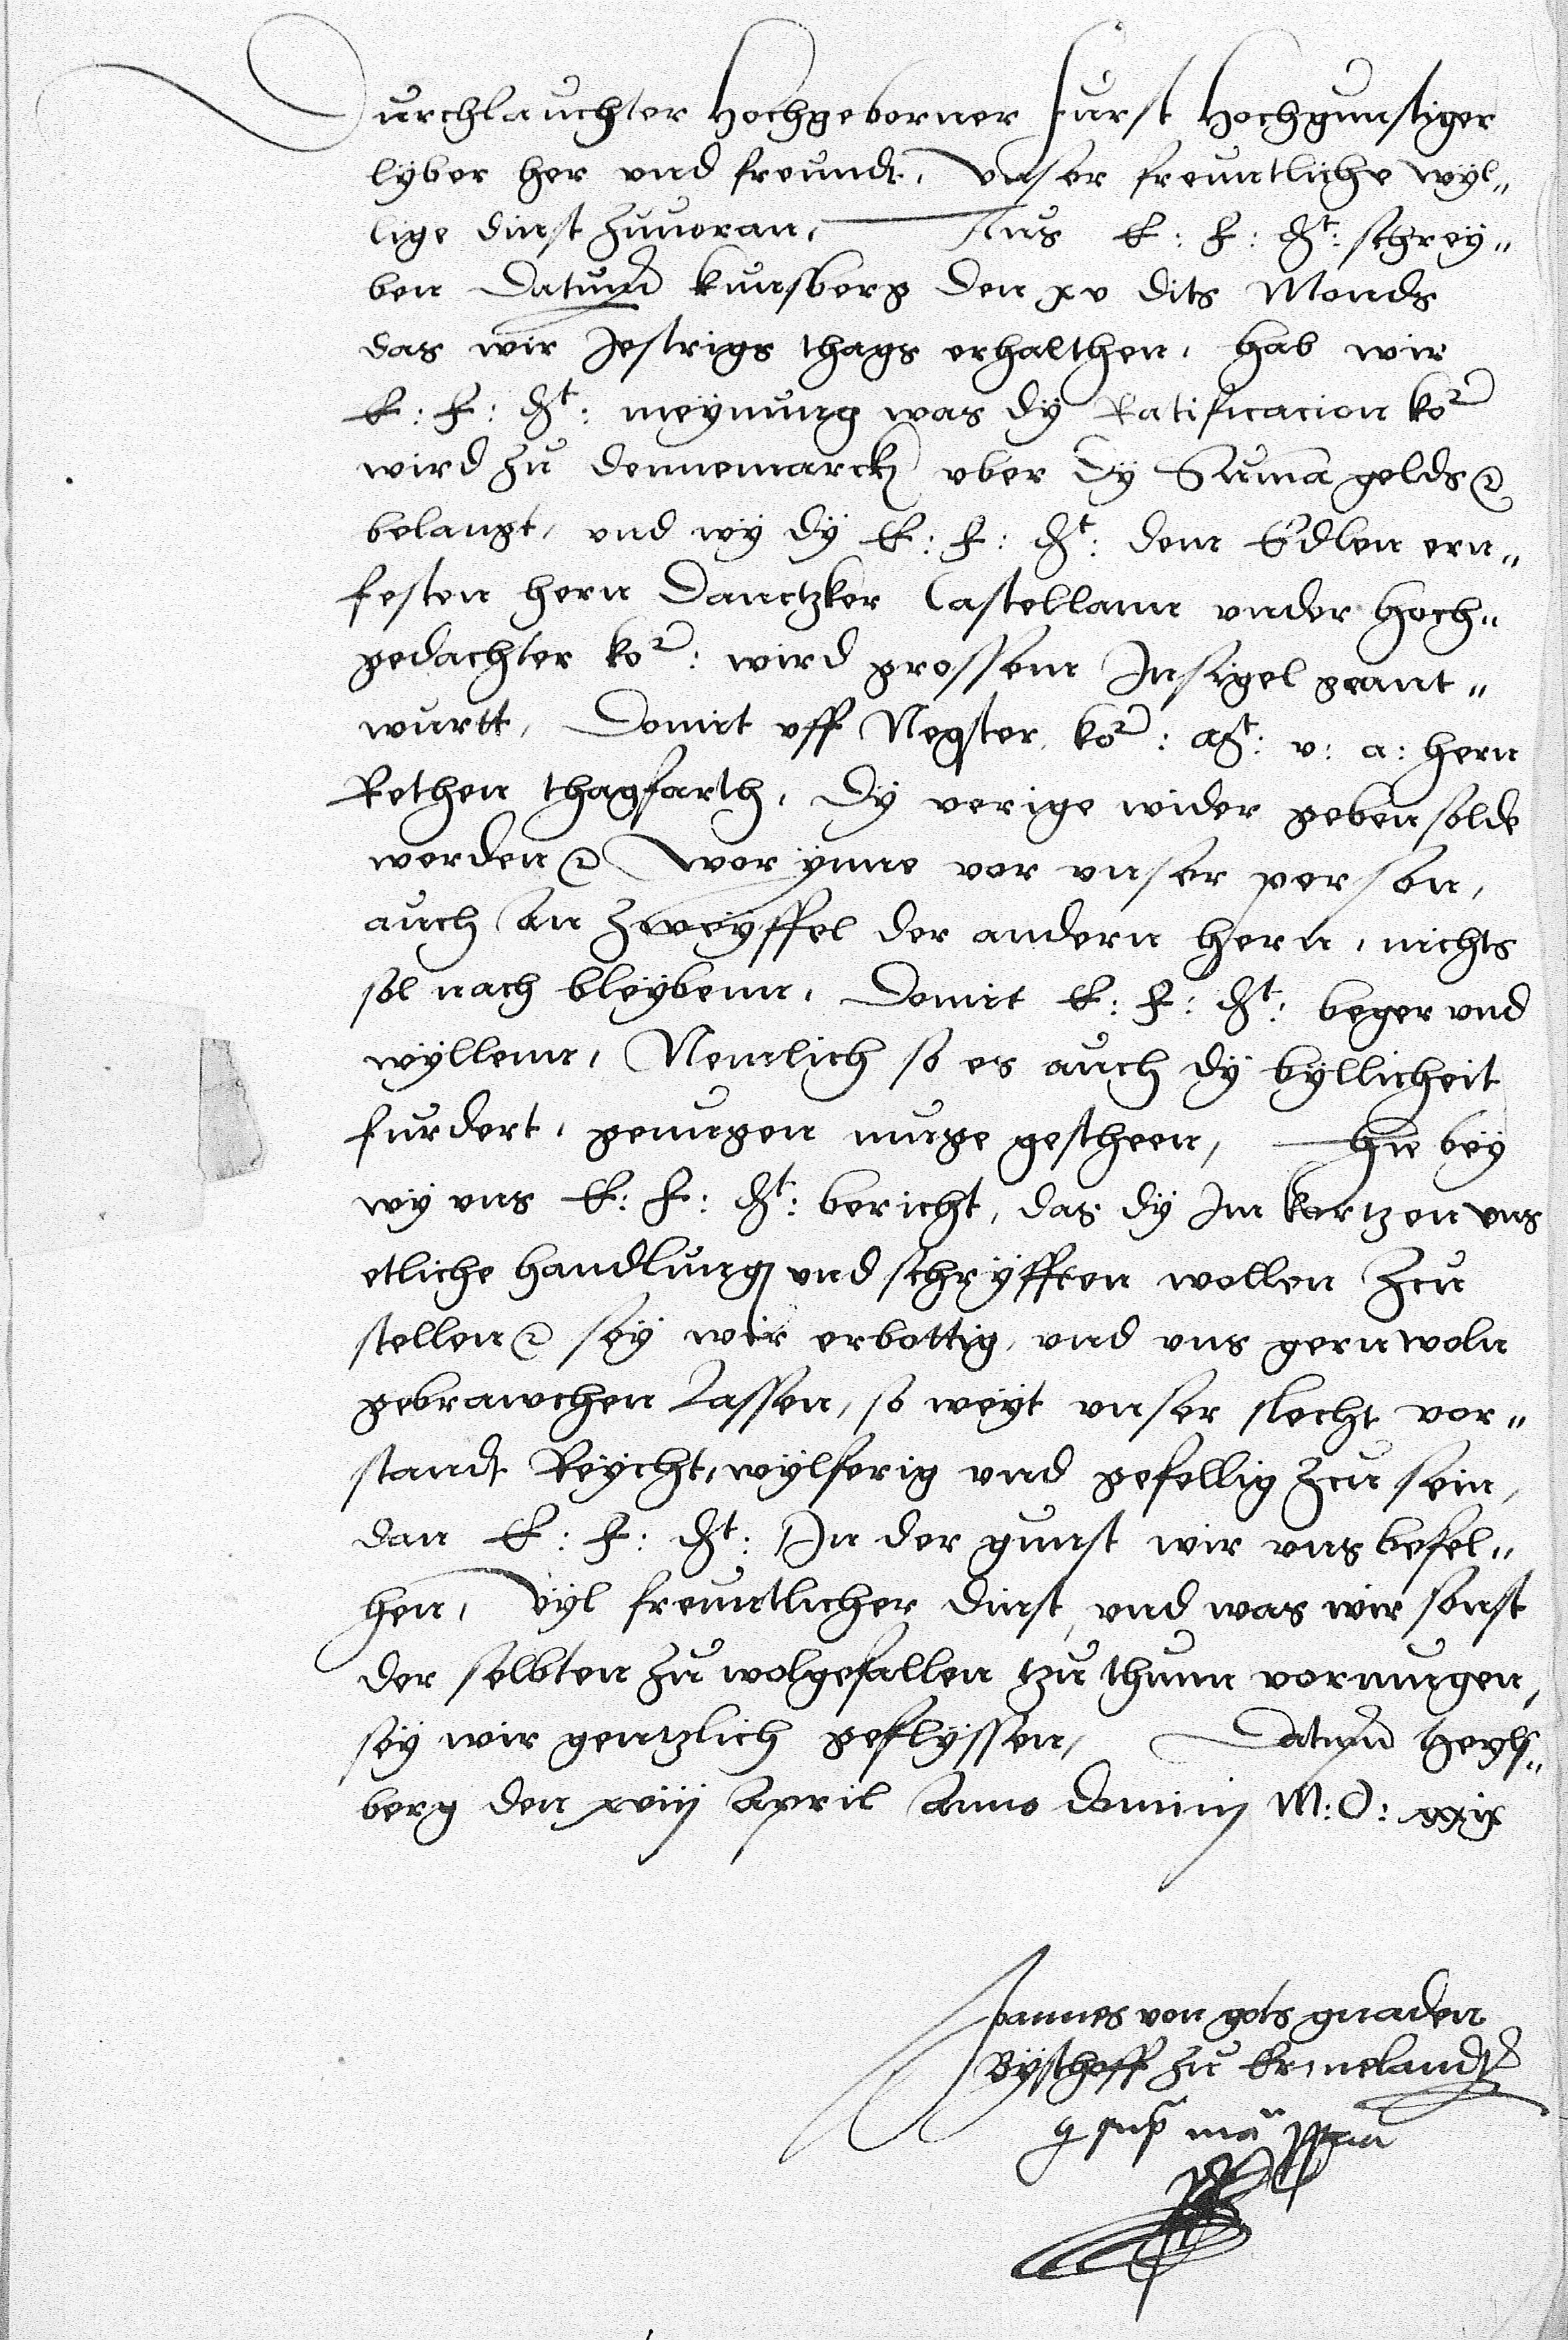 Durchlauchter Hochgeborner furst Hochgunstiger
lyber her vnd freundt, Vnser freuntliche wyl„
lige dinst zuuoran, Aus E: F: dt: schrey„
ben Datum kunsberg den xv dits Monds
das wir Jestrigs thags erhalthen, hab wir
E: F: dt: meynung was dy Ratificacion kor
wird zu dennemarck vber dy Suma gelds
belangt, vnd wy dy E: F: dt: dem Edlen ern„
festen hern Danctzker Castellann vnder hoch„
gedachter kor: wird grossem Jnsigel geant„
wurtt, Domit vff Negster kor: Mt: v: a: hern
Rethen thagfarth, dy verige wider geben solde
werden worynne vor vnser person,
auch an zweyffel der andern hern, nichts
sol nach bleybenn, Domit E: F: dt: beger vnd
wyllenn, Nemlich so es auch dy byllicheit
furdert, genugen muge gescheen, Hie bey
wy vns E: F: dt: bericht, das dy Jn kortzen vns
etliche handlung vnd schryfften wollen zcu
stellen sey wir erbottig, vnd vns gern woln
gebrawchen Lassen, so weyt vnser slecht vor„
standt Reycht, wylferig vnd gefellig zcu sein,
dan E: F: dt: Jn der gunst wir vns befel„
hen, Vyl freuntlicher dinst, vnd was wir sonst
der selbten zu wolgefallen tzu thunn vormugen,
sey wir gentzlich geflyssen, Datum Heyls„
berg den xviij April Anno dominj M: D: xxix
Joannes von gots gnaden
Byschoff zu Ermelandt